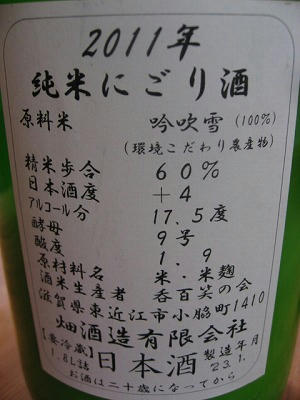 2011年
純米にごり酒
原料米 吟吹雪(100%)
(環境こだわり農産物)
精米歩合 60%
日本酒度 +4
アルコール分 17.5度
酵母 9号
酸度 1.9
原材料名 米・米麹
酒米生産者 呑百笑の会
滋賀県東近江市小脇町1410
畑酒造有限会社
【要冷蔵】 日本酒 製造年月
1.8L詰 23.1.
お酒は二十歳になってから